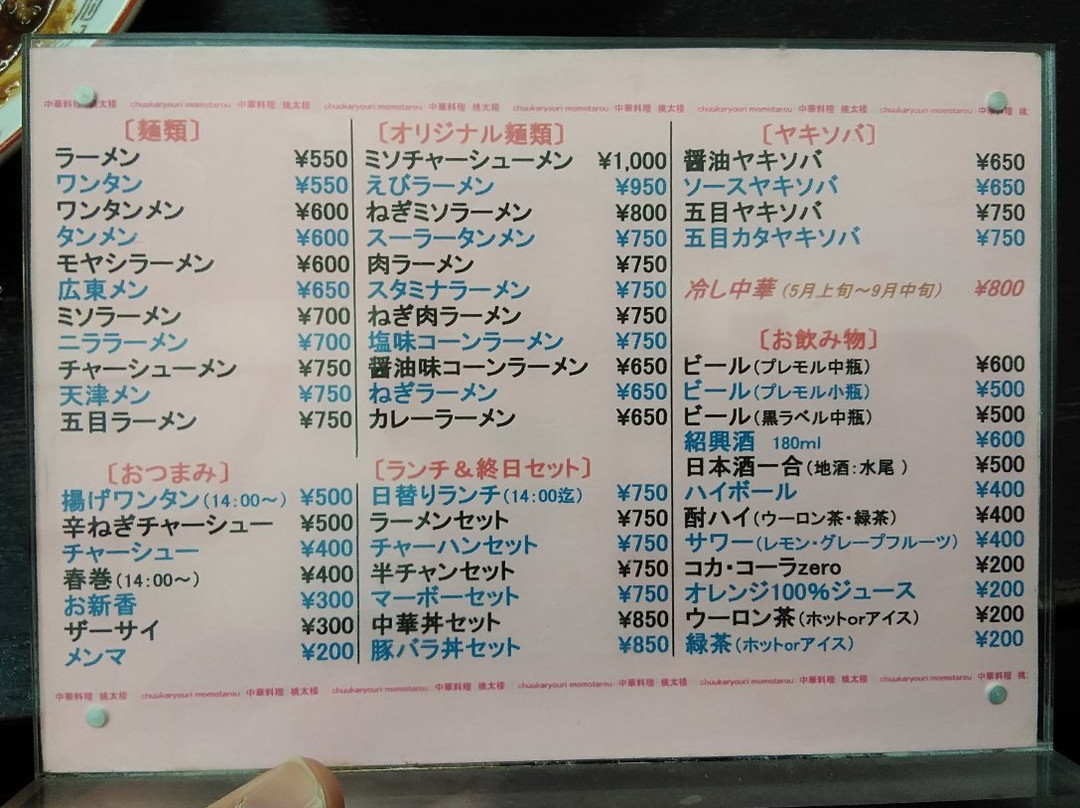 中華料理 桃太楼 chuukaryouri momotarou 中華料理 桃太楼 chuukaryouri momotarou 中華料理 桃太楼 chuukaryouri momotarou 中華料理 桃太楼 chuukaryouri momotarou 中華料理 桃太楼 chuukaryouri momotarou 中華料理 桃
〔麺類〕
ラーメン ¥550
ワンタン ¥550
ワンタンメン ¥600
タンメン ¥600
モヤシラーメン ¥600
広東メン ¥650
ミソラーメン ¥700
ニララーメン ¥700
チャーシューメン ¥750
天津メン ¥750
五目ラーメン ¥750
〔おつまみ〕
揚げワンタン(14:00～) ¥500
辛ねぎチャーシュー ¥500
チャーシュー ¥400
春巻(14:00～) ¥400
お新香 ¥300
ザーサイ ¥300
メンマ ¥200
〔オリジナル麺類〕
ミソチャーシューメン ¥1,000
えびラーメン ¥950
ねぎミソラーメン ¥800
スーラータンメン ¥750
肉ラーメン ¥750
スタミナラーメン ¥750
ねぎ肉ラーメン ¥750
塩味コーンラーメン ¥750
醤油味コーンラーメン ¥650
ねぎラーメン ¥650
カレーラーメン ¥650
〔ランチ＆終日セット〕
日替りランチ(14:00迄) ¥750
ラーメンセット ¥750
チャーハンセット ¥750
半チャンセット ¥750
マーボーセット ¥750
中華丼セット ¥850
豚バラ丼セット ¥850
〔ヤキソバ〕
醤油ヤキソバ ¥650
ソースヤキソバ ¥650
五目ヤキソバ ¥750
五目カタヤキソバ ¥750
冷し中華(5月上旬～9月中旬) ¥800
〔お飲み物〕
ビール(プレモル中瓶) ¥600
ビール(プレモル小瓶) ¥500
ビール(黒ラベル中瓶) ¥500
紹興酒 180ml ¥600
日本酒一合(地酒:水尾) ¥500
ハイボール ¥400
酎ハイ(ウーロン茶・緑茶) ¥400
サワー(レモン・グレープフルーツ) ¥400
コカ・コーラzero ¥200
オレンジ100%ジュース ¥200
ウーロン茶(ホットorアイス) ¥200
緑茶(ホットorアイス) ¥200
中華料理 桃太楼 chuukaryouri momotarou 中華料理 桃太楼 chuukaryouri momotarou 中華料理 桃太楼 chuukaryouri momotarou 中華料理 桃太楼 chuukaryouri momotarou 中華料理 桃太楼 chuukaryouri momotarou 中華料理 桃